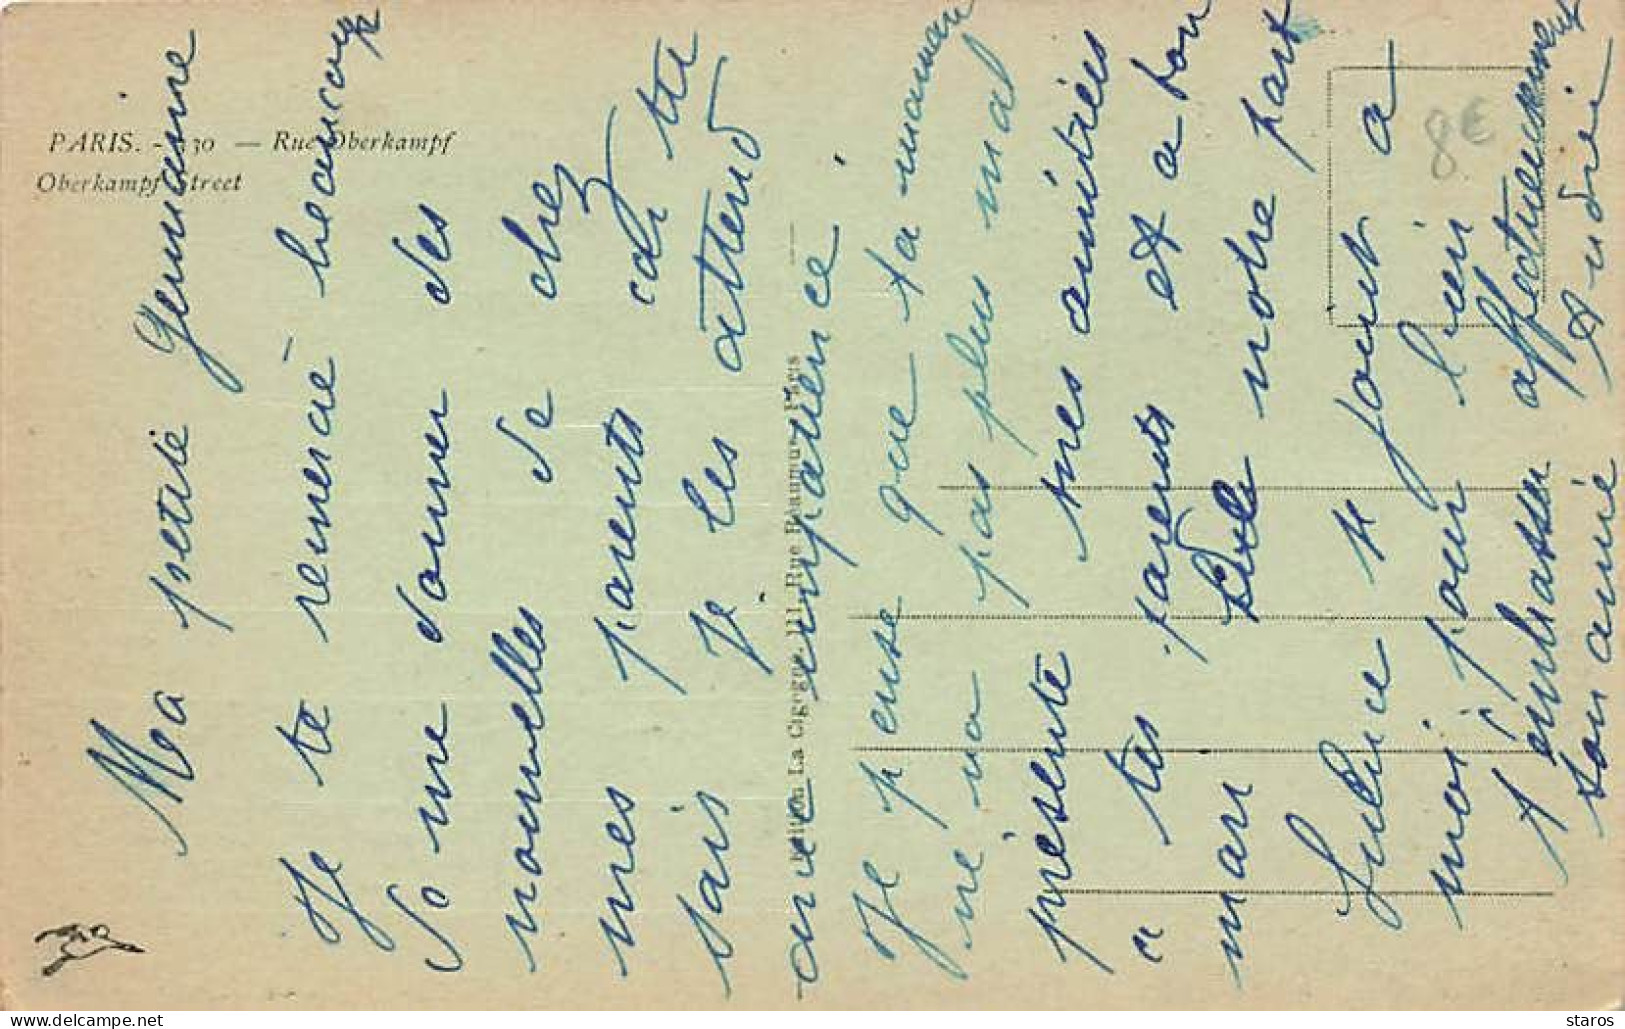 PARIS. - 130 — Rue Oberkampf
Oberkampf Street
Ma petite Germaine
Je te remercie beaucoup
de me donner des
nouvelles de chez
mes parents car tu
sais je les attend
avec impatience.
Je pense que ta maman
ne va pas plus mal
présente mes amitiées
a tes parents et a ton
mari de notre part
Julien se joint a
moi pour bien
t'embrasser affectueusement
ton amie Andrée
Edition La Cigogne, 111, Rue Réaumur, Paris
8€
delcampe.net
staros